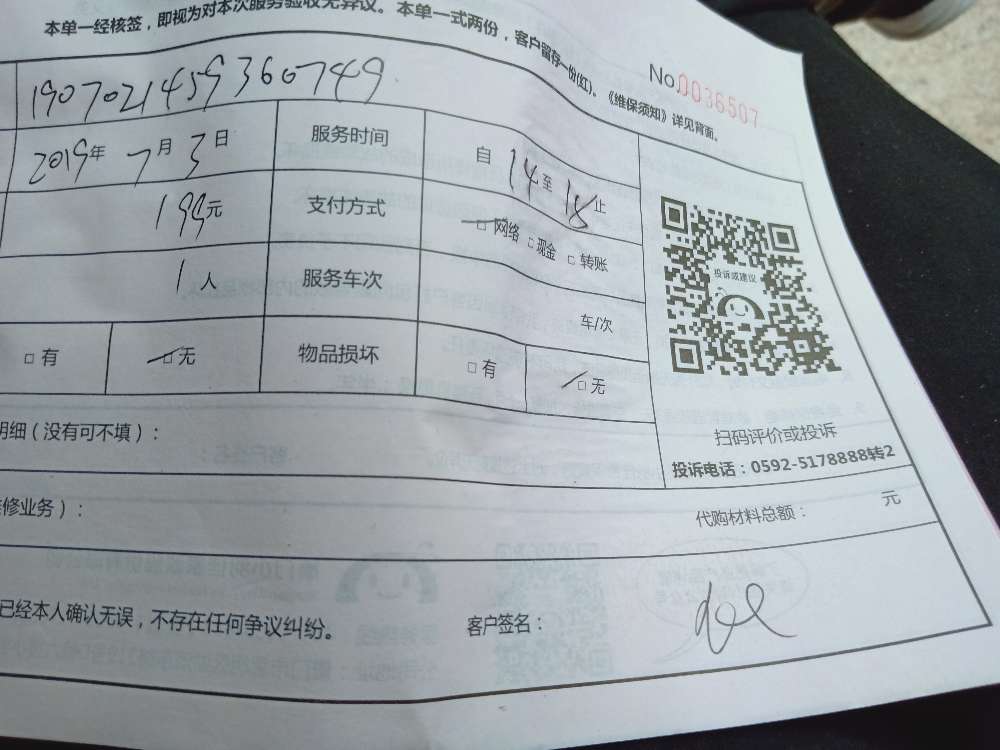 本单一经核签，即视为对本次服务验收无异议。本单一式两份，客户留存一份(红)。《维保须知》详见背面。
No.0036507
190702145936074９
2019年 7月 3日
服务时间
自 14 至 18 止
199元
支付方式
□ 网络 □ 现金 □ 转账
1 人
服务车次
车/次
□ 有
□ 无
物品损坏
□ 有
□ 无
投诉或建议
扫码评价或投诉
投诉电话：0592-5178888转2
明细（没有可不填）：
修业务）：
代购材料总额： 元
已经本人确认无误，不存在任何争议纠纷。
客户签名：